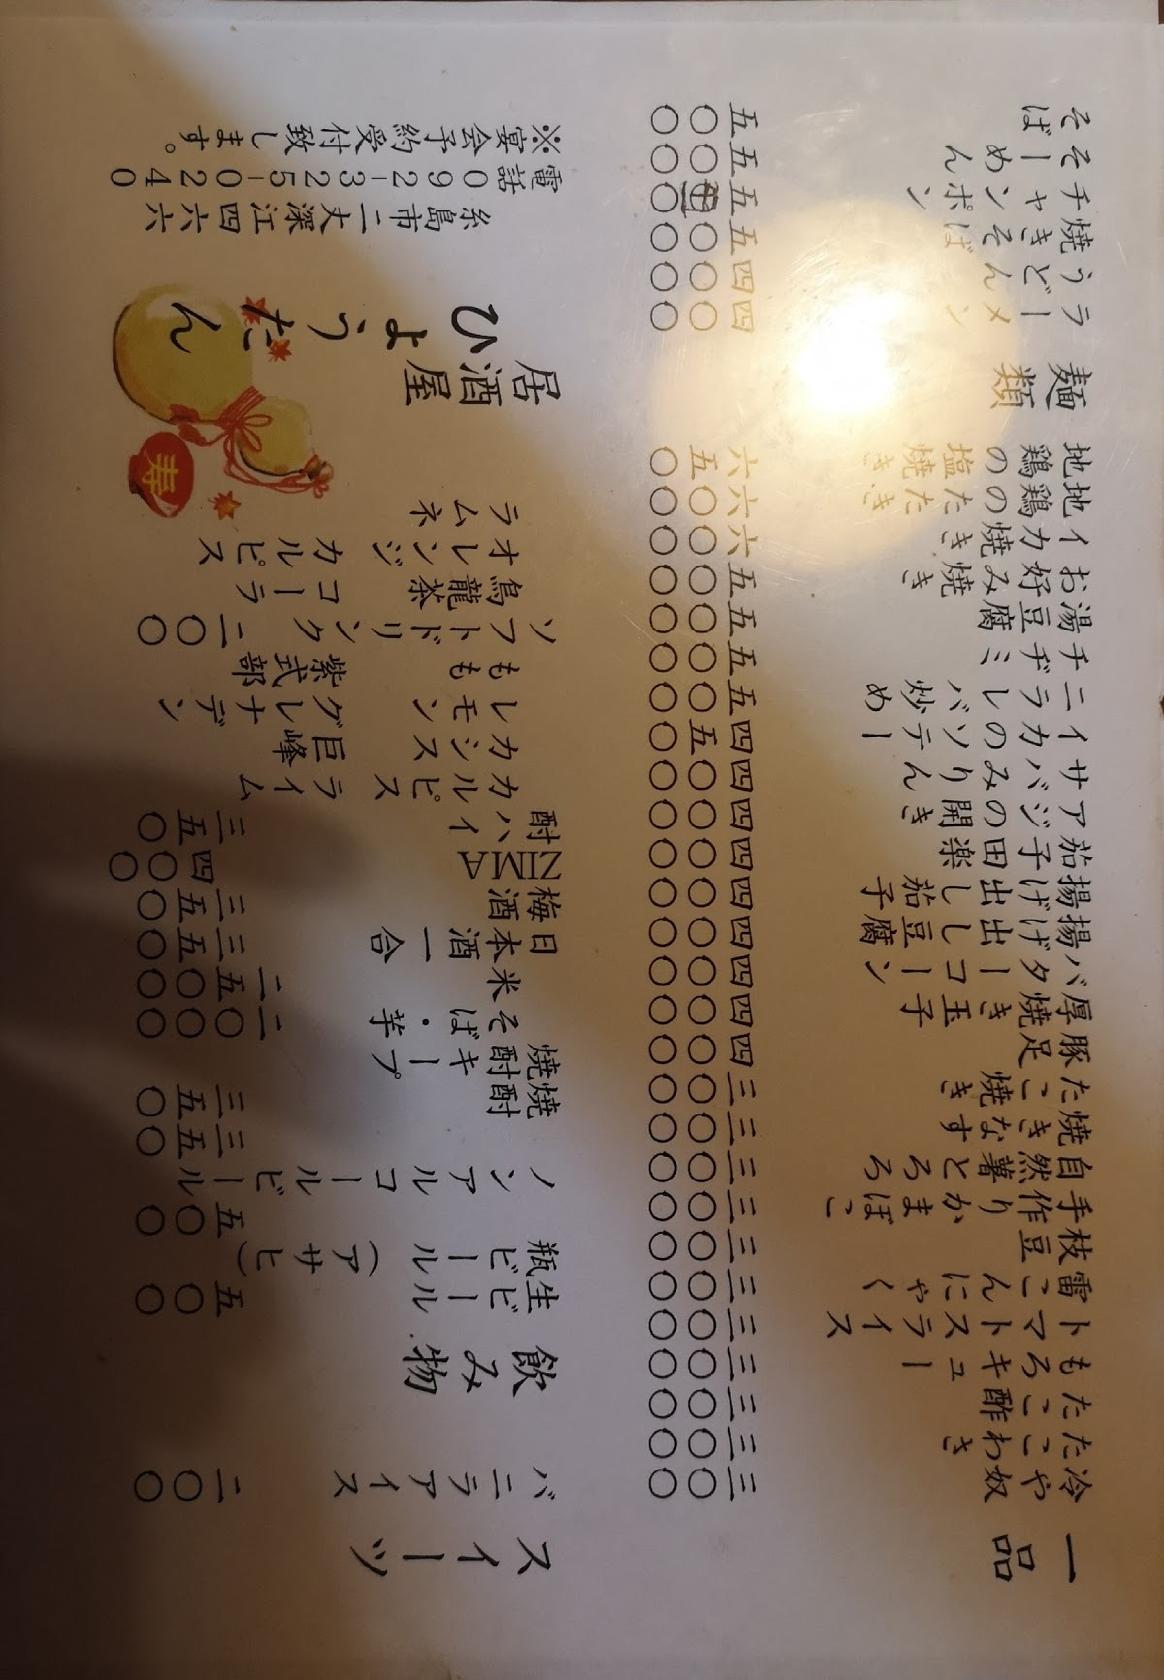 一品
冷や奴 三〇〇
たこわさ 三〇〇
たこ酢 三〇〇
もろキュー 三〇〇
トマトスライス 三〇〇
雷こんにゃく 三〇〇
枝豆 三〇〇
手作りかまぼこ 三〇〇
自然薯とろろ 三〇〇
焼きなす 三〇〇
たこ焼き 三〇〇
豚足 四〇〇
厚焼き玉子 四〇〇
バターコーン 四〇〇
揚げ出し豆腐 四〇〇
揚げ出し茄子 四〇〇
茄子田楽 四〇〇
アジの開き 四〇〇
サバのみりん 四〇〇
イカのソテー 四五〇
ニラレバ炒め 五〇〇
チヂミ 五〇〇
湯豆腐 五〇〇
お好み焼き 五〇〇
イカ焼き 六〇〇
地鶏のたたき 六〇〇
地鶏の塩焼き 六五〇
麺類
ラーメン 四〇〇
うどん 四〇〇
焼きそば 五〇〇
チャンポン 五五〇
そーめん 五〇〇
そば 五〇〇
スイーツ
バニラアイス 二〇〇
飲み物
生ビール 五〇〇
瓶ビール（アサヒ） 五〇〇
ノンアルコールビール 三五〇
焼酎 三五〇
焼酎キープ
そば・芋 二〇〇〇
米 二五〇〇
日本酒一合 三五〇
梅酒 三五〇
ZIMA 四〇〇
酎ハイ 三五〇
カルピス ライム
カシス 巨峰
レモン グレナデン
もも 紫式部
ソフトドリンク 二〇〇
烏龍茶 コーラ
オレンジ カルピス
ラムネ
寿
居酒屋
ひょうたん
糸島市二丈深江四六六
電話 092-325-0240
※宴会予約受付致します。